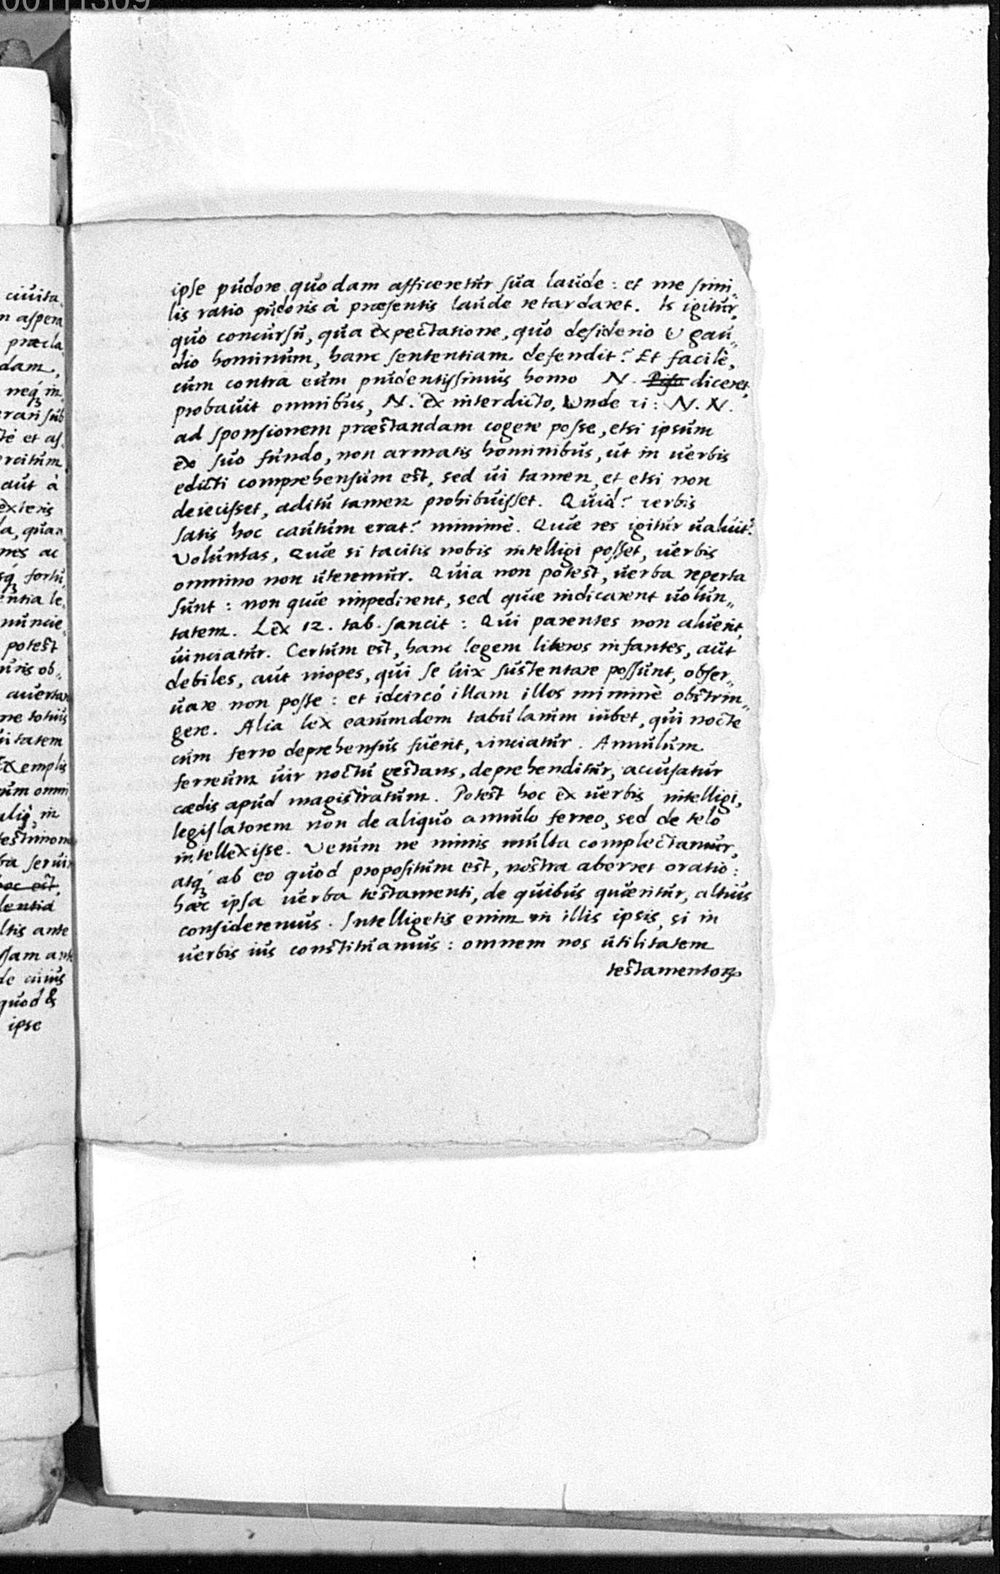 00111309
ciuita„
n aspera
præcla„
dam,
neq́; in„
té et as„
rcitum
aut à
exteris
la, quan
nes ac
fortú„
entia le„
nuncie„
potest
iuris ob„
auertan
ne totius
uitatem
Exemplis
rum omni
in
testimoni
ra serui
hoc est,
ltis ante
ssam ante
de cuius
quod &
ipse
ipse pudore quodam afficeretur sua laude: et me simi„
lis ratio pudoris à præsentis laude retardaret. Is igitur,
quo concursu, qua expectatione, quo desiderio & gau„
dio hominum, hanc sententiam defendit? Et facilè,
cùm contra eum prudentissimus homo N. Piso diceret,
probauit omnibus, N. ex interdicto, Unde vi: N. N.
ad sponsionem præstandam cogere posse, etsi ipsum
ex suo fundo, non armatis hominibus, ut in uerbis
edicti comprehensum est, sed ui tamen, et etsi non
deiecisset, aditu tamen prohibuisset. Quid? verbis
satis hoc cautum erat? minimè. Quæ res igitur ualuit?
Voluntas, Quæ si tacitis nobis intelligi posset, uerbis
omnino non uteremur. Quia non potest, uerba reperta
sunt: non quæ impedirent, sed quæ indicarent uolun„
tatem. Lex 12. tab. sancit: Qui parentes non aluerit,
uinciatur. Certum est, hanc legem liberos infantes, aut
debiles, aut inopes, qui se uix sustentare possunt, obser„
uare non posse: et idcircó illam illos minimè obstrin„
gere. Alia lex earumdem tabularum iubet, qui nocte
cùm ferro deprehensus fuerit, vinciatur. Annulum
ferreum uir noctu gestans, deprehenditur, accusatur
cædis apud magistratum. Potest hoc ex uerbis intelligi,
legislatorem non de aliquo annulo ferreo, sed de telo
intellexisse. Verùm ne nimis multa complectamur,
atq́; ab eo quod propositum est, nostra aberret oratio:
hæc ipsa uerba testamenti, de quibus quæritur, altius
consideremus. Intelligetis enim in illis ipsis, si in
uerbis ius constituamus: omnem nos utilitatem
testamentoꝝ